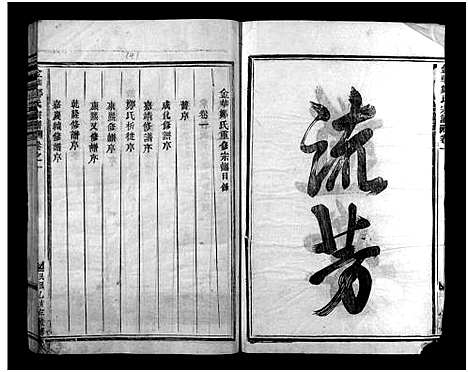 流芳
金華鄭氏重修宗譜目錄
卷一
舊序
成化修譜序
嘉靖修譜序
鄭氏析徙序
康熙修譜序
康熙又修譜序
乾隆修譜序
嘉慶續修譜序
金華鄭氏宗譜
卷之一